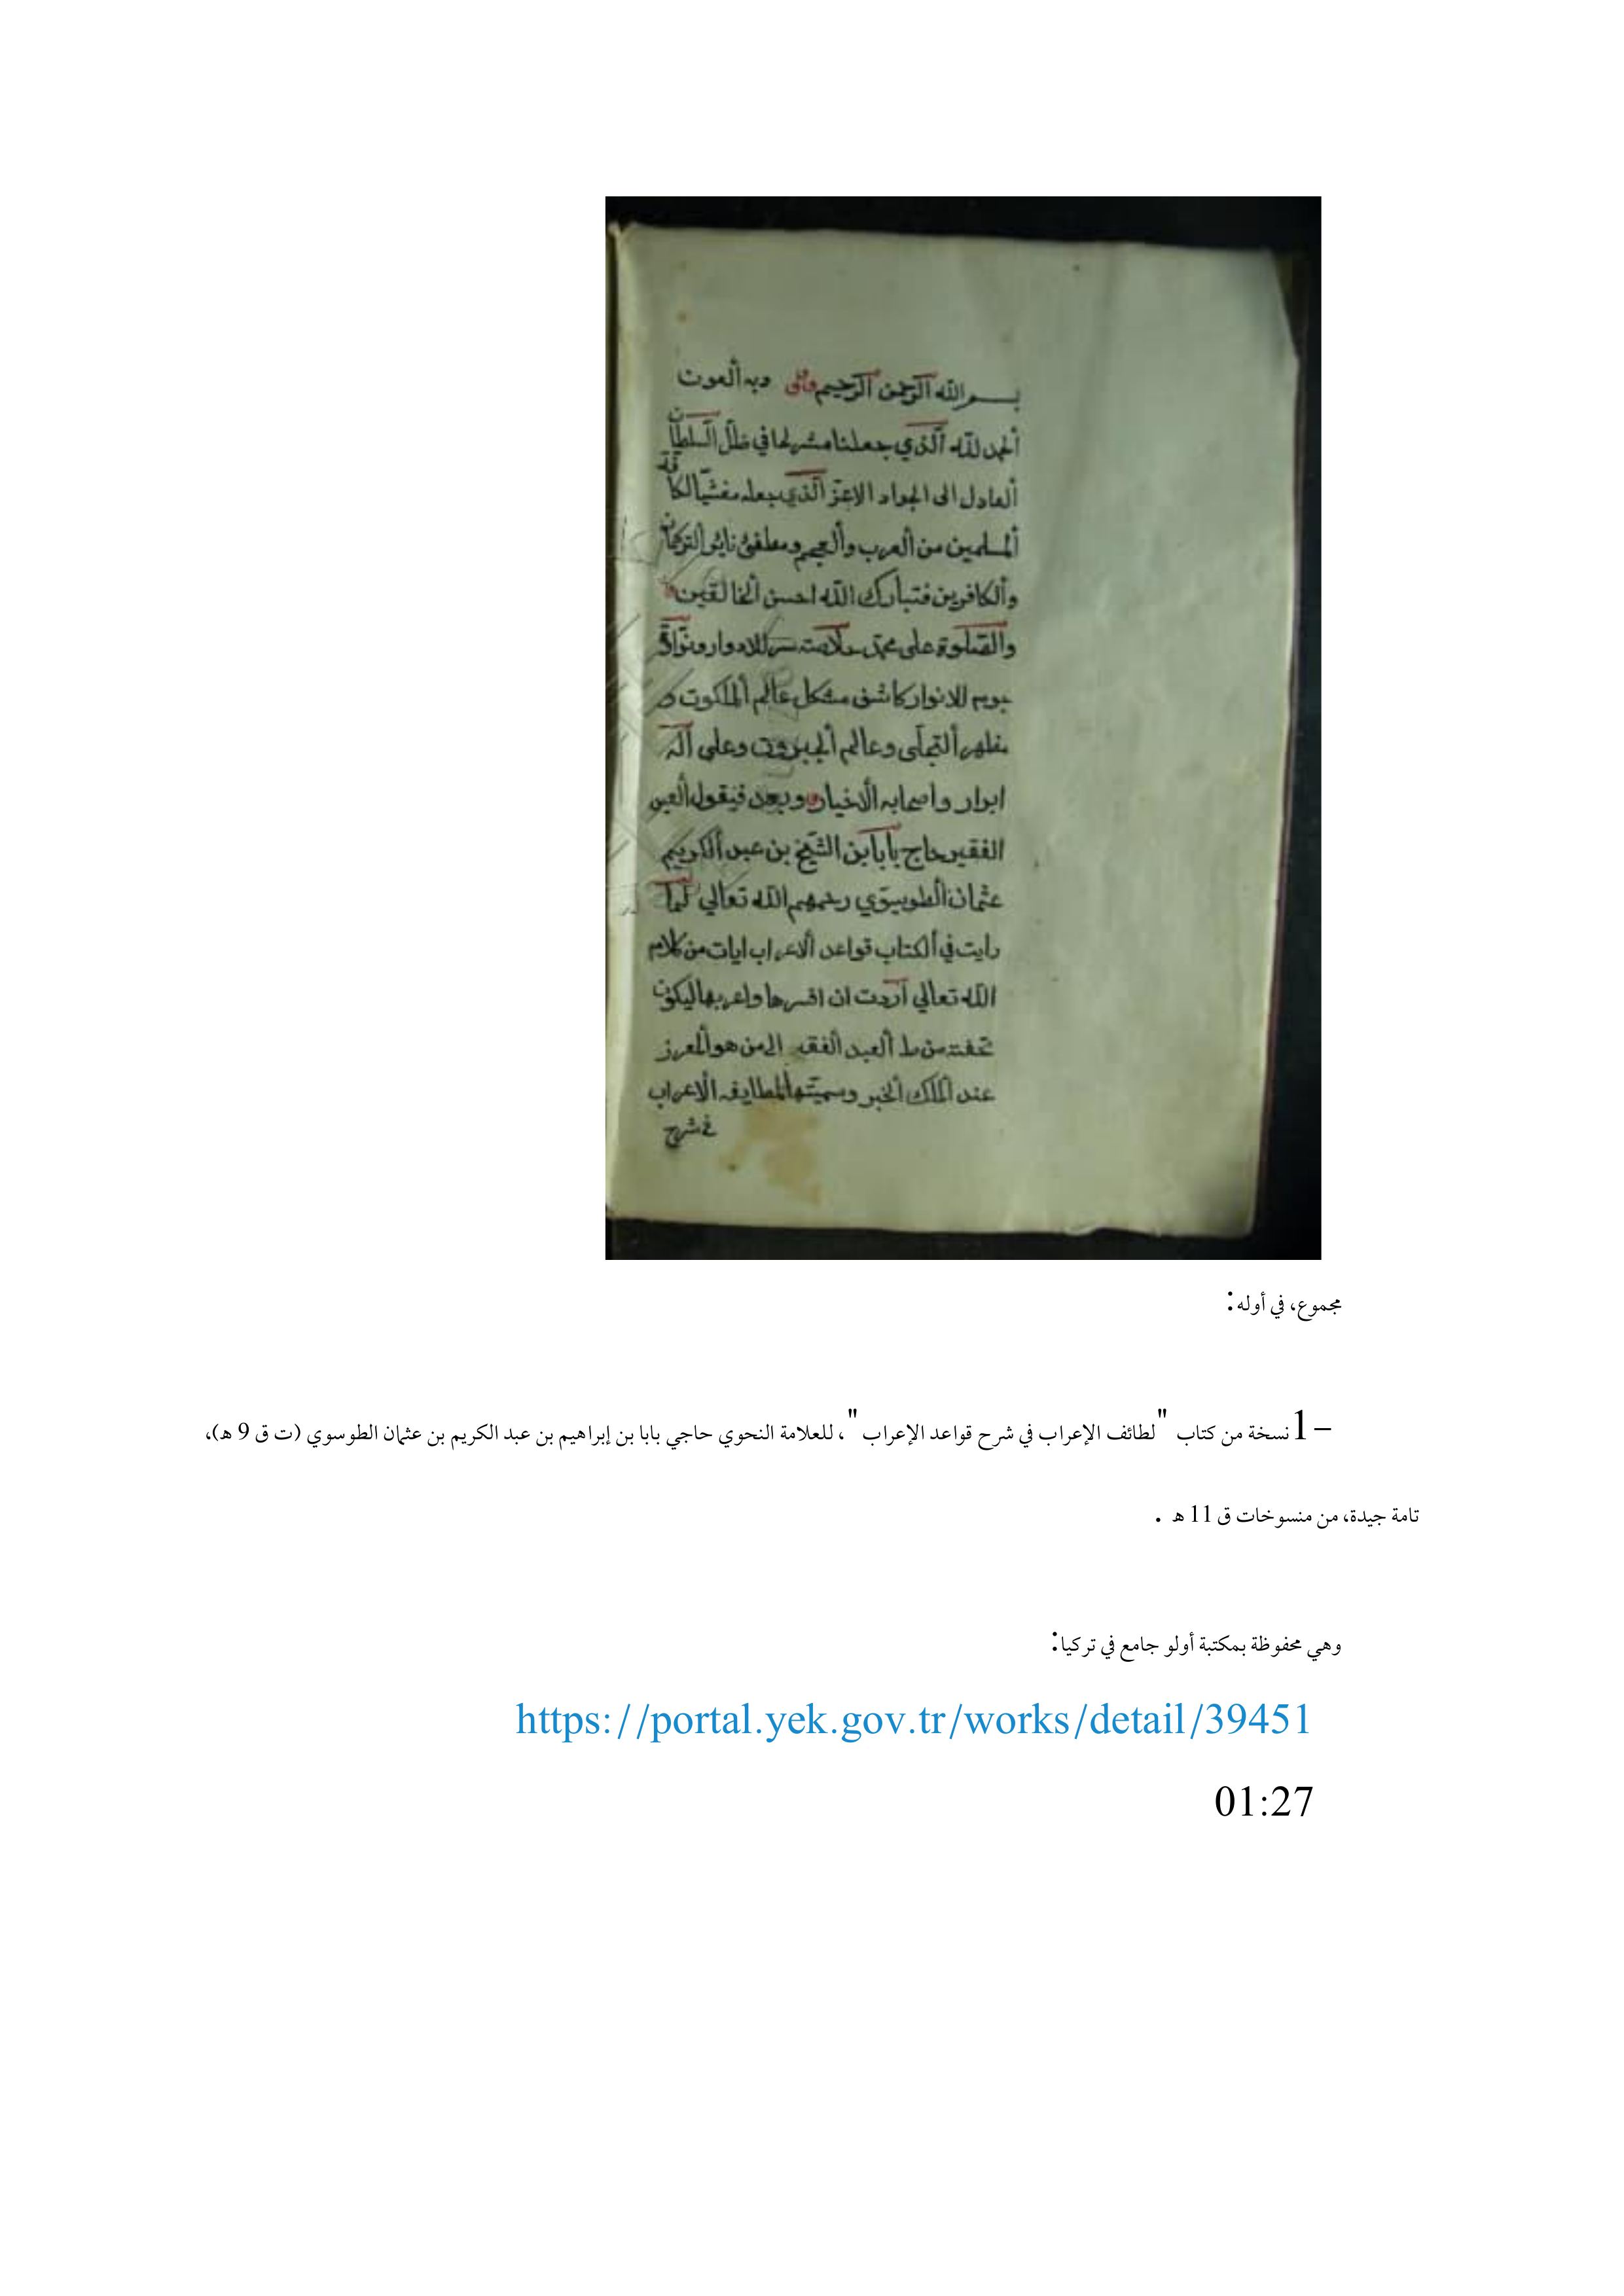 بسم الله الرحمن الرحيم وبه العون
ألحمد لله الذي جعلنا منشرحا في ظلّ السلطان
ألعادل الى الجواد الاعزّ الذي جعله مغنيّا لكافة
ألمسلمين من ألعرب وألعجم ومطفئ نايرألتركمان
وألكافرين فتبارك الله احسن ألخالقين
والصلوة على محمد للادوار
للانوار كاشف مشكل عالم ألملكوت و
مظهر ألتجلّى وعالم ألجبروت وعلى آله
ابرار واصحابه الاخيار وبعد فيقول ألعبد
الفقير حاج بابا بن الشيخ بن عبد ألكريم
عثمان ألطوسوّي رحمهم الله تعالى لما
رايت في ألكتاب قواعد ألاعراب ايات من كلام
الله تعالى أردت ان افسرها واعربها ليكون
تحفة من ألعبد الفقير الى من هو ألمعزز
عند ألملك ألخبير وسميّتها لطايف الاعراب
في شرح
مجموع، في أوله:
1– نسخة من كتاب "لطائف الإعراب في شرح قواعد الإعراب"، للعلامة النحوي حاجي بابا بن إبراهيم بن عبد الكريم بن عثمان الطوسوي (ت ق 9 هـ)،
تامة جيدة، من منسوخات ق 11 هـ .
وهي محفوظة بمكتبة أولو جامع في تركيا:
https://portal.yek.gov.tr/works/detail/39451
01:27